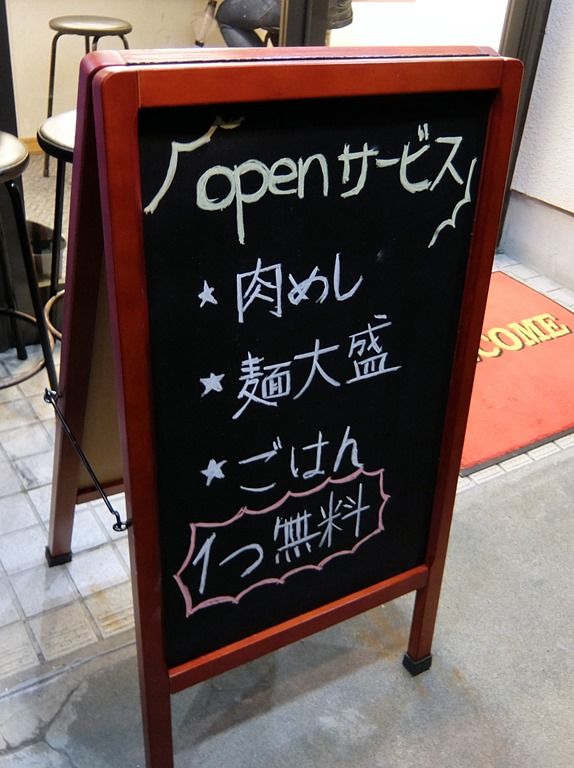 openサービス
★ 肉めし
★ 麺大盛
★ ごはん
1つ無料
COME